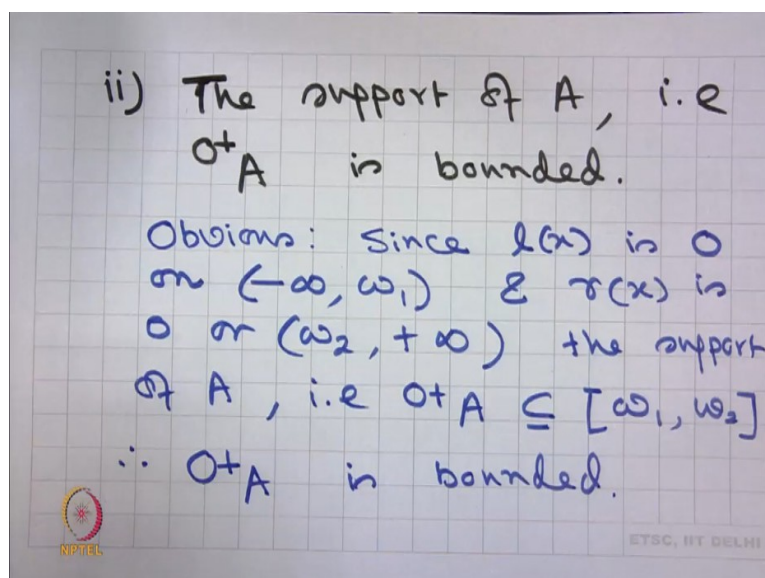 ii) The support of A, i.e
0+A is bounded.
Obvious: Since l(x) is 0
on (-∞, ω₁) & r(x) is
0 or (ω₂, +∞) the support
of A, i.e 0+A ⊆ [ω₁, ω₂]
∴ 0+A is bounded.
NPTEL
ETSC, IIT DELHI